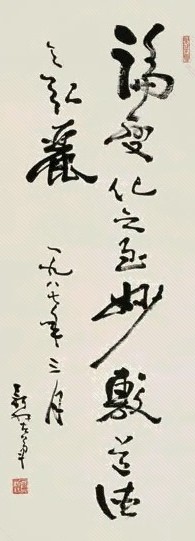 譎變化之至妙敷道德
之弘麗
一九八七年三月